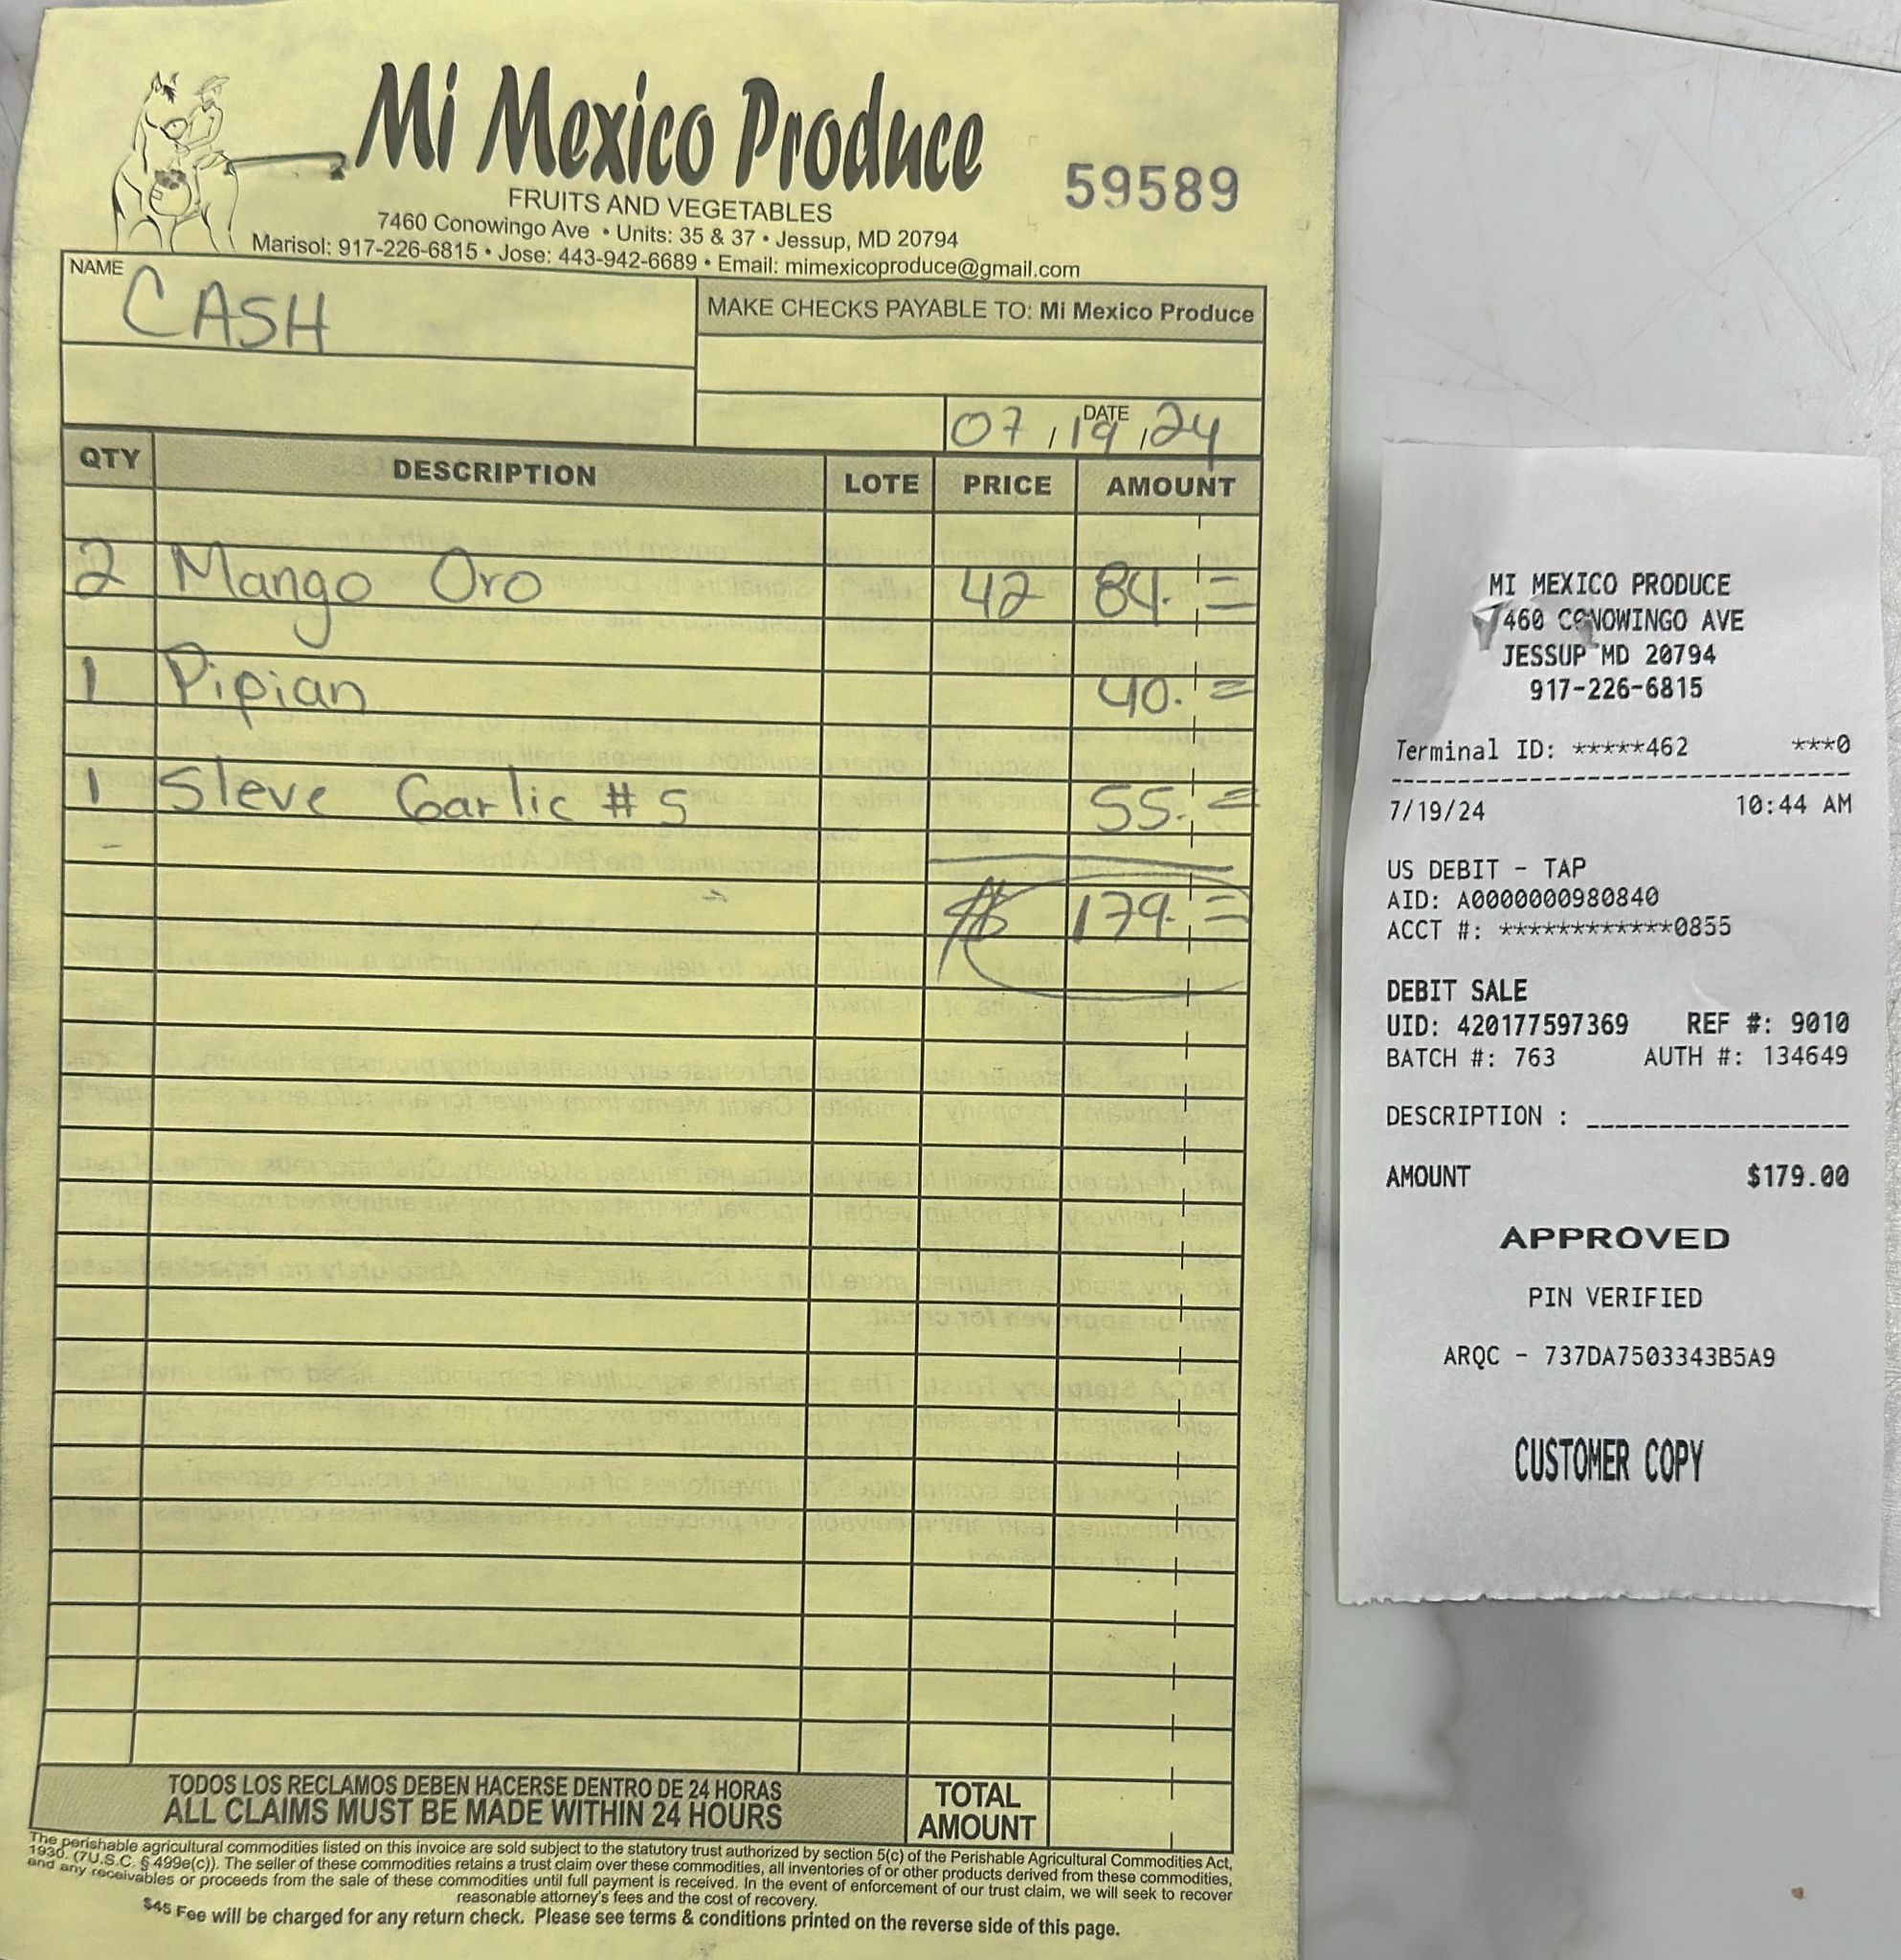 Mi Mexico Produce
59589
FRUITS AND VEGETABLES
7460 Conowingo Ave • Units: 35 & 37 • Jessup, MD 20794
Marisol: 917-226-6815 • Jose: 443-942-6689 • Email: mimexicoproduce@gmail.com
NAME CASH
MAKE CHECKS PAYABLE TO: Mi Mexico Produce
DATE
07/19/24
QTY DESCRIPTION LOTE PRICE AMOUNT
2 Mango Oro 42 84.=
1 Pipian 40.=
1 Sleve Garlic #5 55.=
$ 179.=
TODOS LOS RECLAMOS DEBEN HACERSE DENTRO DE 24 HORAS
ALL CLAIMS MUST BE MADE WITHIN 24 HOURS
TOTAL
AMOUNT
The perishable agricultural commodities listed on this invoice are sold subject to the statutory trust authorized by section 5(c) of the Perishable Agricultural Commodities Act,
1930. (7U.S.C. § 499e(c)). The seller of these commodities retains a trust claim over these commodities, all inventories of or other products derived from these commodities,
and any receivables or proceeds from the sale of these commodities until full payment is received. In the event of enforcement of our trust claim, we will seek to recover
reasonable attorney's fees and the cost of recovery.
$45 Fee will be charged for any return check. Please see terms & conditions printed on the reverse side of this page.
MI MEXICO PRODUCE
7460 CONOWINGO AVE
JESSUP MD 20794
917-226-6815
Terminal ID: *****462 ***0
7/19/24 10:44 AM
US DEBIT - TAP
AID: A0000000980840
ACCT #: ************0855
DEBIT SALE
UID: 420177597369 REF #: 9010
BATCH #: 763 AUTH #: 134649
DESCRIPTION : __________________
AMOUNT $179.00
APPROVED
PIN VERIFIED
ARQC - 737DA7503343B5A9
CUSTOMER COPY